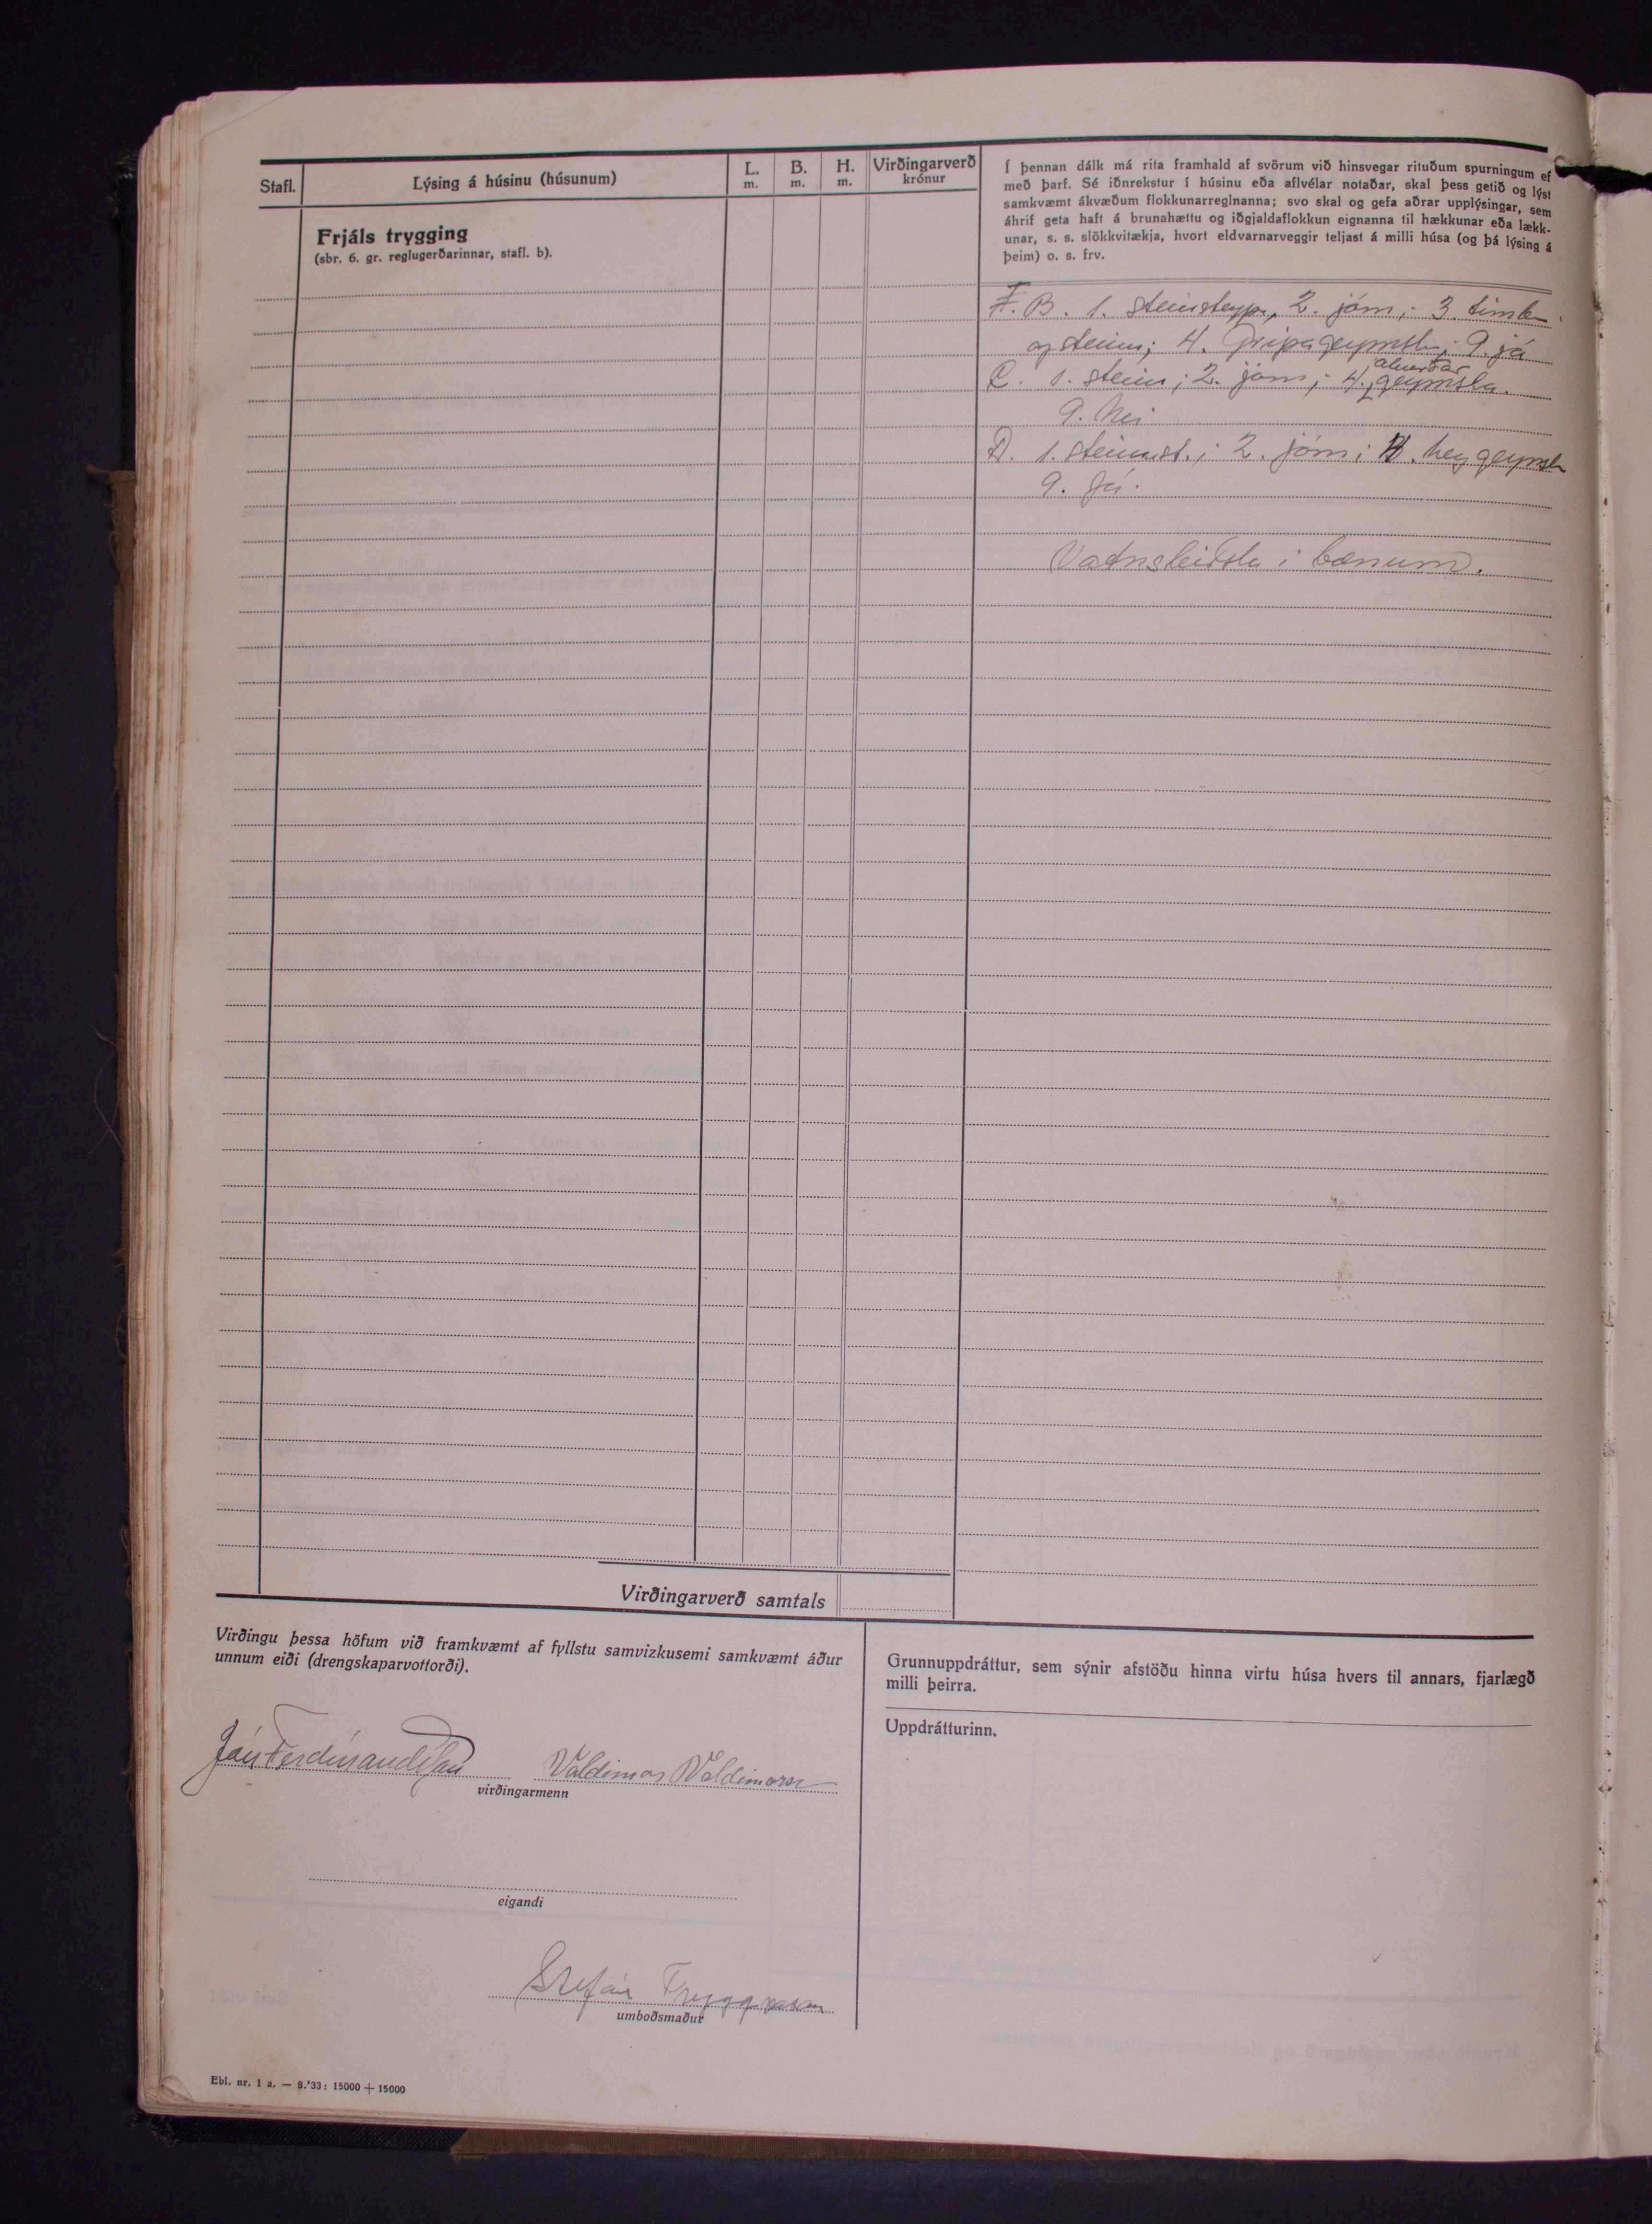 Stafl.
Lýsing á húsinu (húsunum)
L.
m.
B.
m.
H.
m.
Virðingarverð
krónur
Frjáls trygging
(sbr. 6. gr. reglugerðarinnar, stafl. b).
Í þennan dálk má rita framhald af svörum við hinsvegar rituðum spurningum ef
með þarf. Sé iðnrekstur í húsinu eða aflvélar notaðar, skal þess getið og lýst
samkvæmt ákvæðum flokkunarreglnanna; svo skal og gefa aðrar upplýsingar, sem
áhrif geta haft á brunahættu og iðgjaldaflokkun eignanna til hækkunar eða lækk-
unar, s. s. slökkvitækja, hvort eldvarnarveggir teljast á milli húsa (og þá lýsing á
þeim) o. s. frv.
F. B. 1. Steinsteypa, 2. járn; 3. timbur
og steinn; 4. Gripageymsla; 9. já
C. 1. steinn; 2. járn; 4. áburðar geymsla.
9. Nei
D. 1. steinst.; 2. járn; 4. heygeymsla
9. Já.
Vatnsleiðsla í bænum.
Virðingarverð samtals
Virðingu þessa höfum við framkvæmt af fyllstu samvizkusemi samkvæmt áður
unnum eiði (drengskaparvottorði).
Jón Ferdínandsson Valdimar Valdimarsson
virðingarmenn
eigandi
Stefán Tryggvason
umboðsmaður
Grunnuppdráttur, sem sýnir afstöðu hinna virtu húsa hvers til annars, fjarlægð
milli þeirra.
Uppdrátturinn.
Ebl. nr. 1 a. — 8.'33: 15000 + 15000